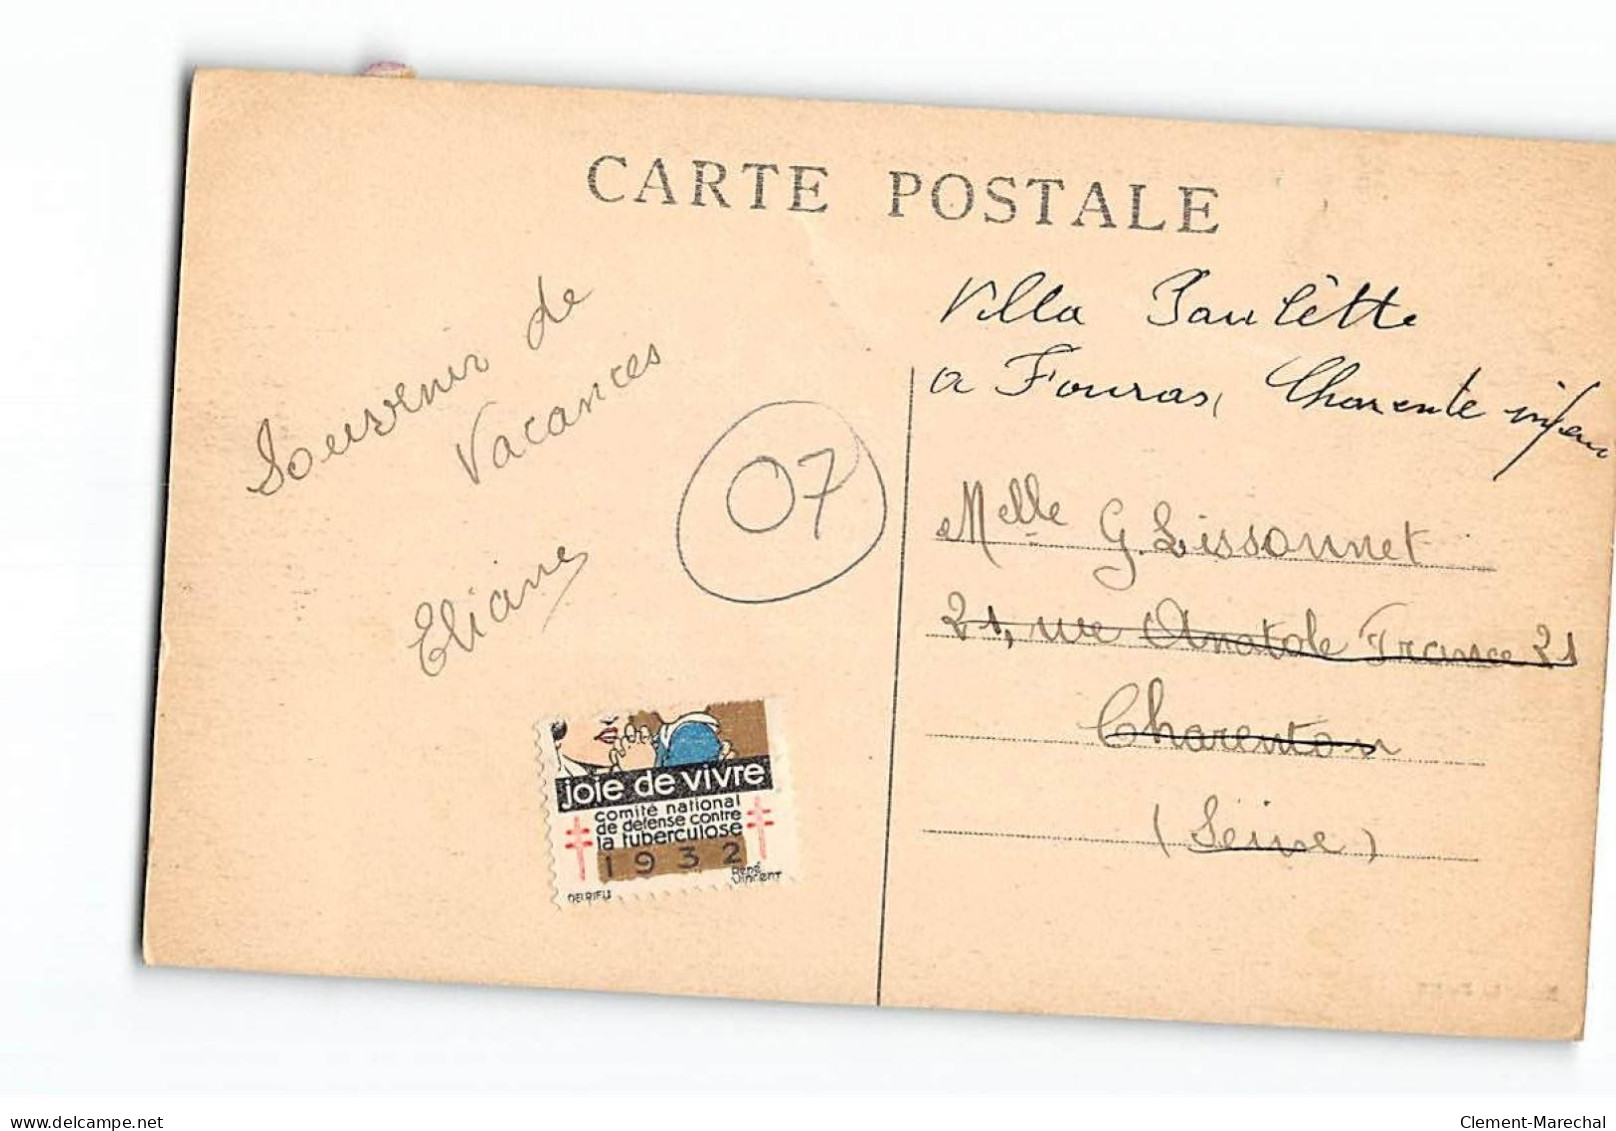 CARTE POSTALE
Souvenir de
Vacances
Eliane
07
Villa Paulètte
a Fouras, Charente infeu
Melle G. Lissonnet
21, rue Anatole France 21
Charenton
(Seine)
joie de vivre
comité national
de défense contre
la tuberculose
1932
DELRIEU
René
Vincent
www.delcampe.net
Clement-Marechal